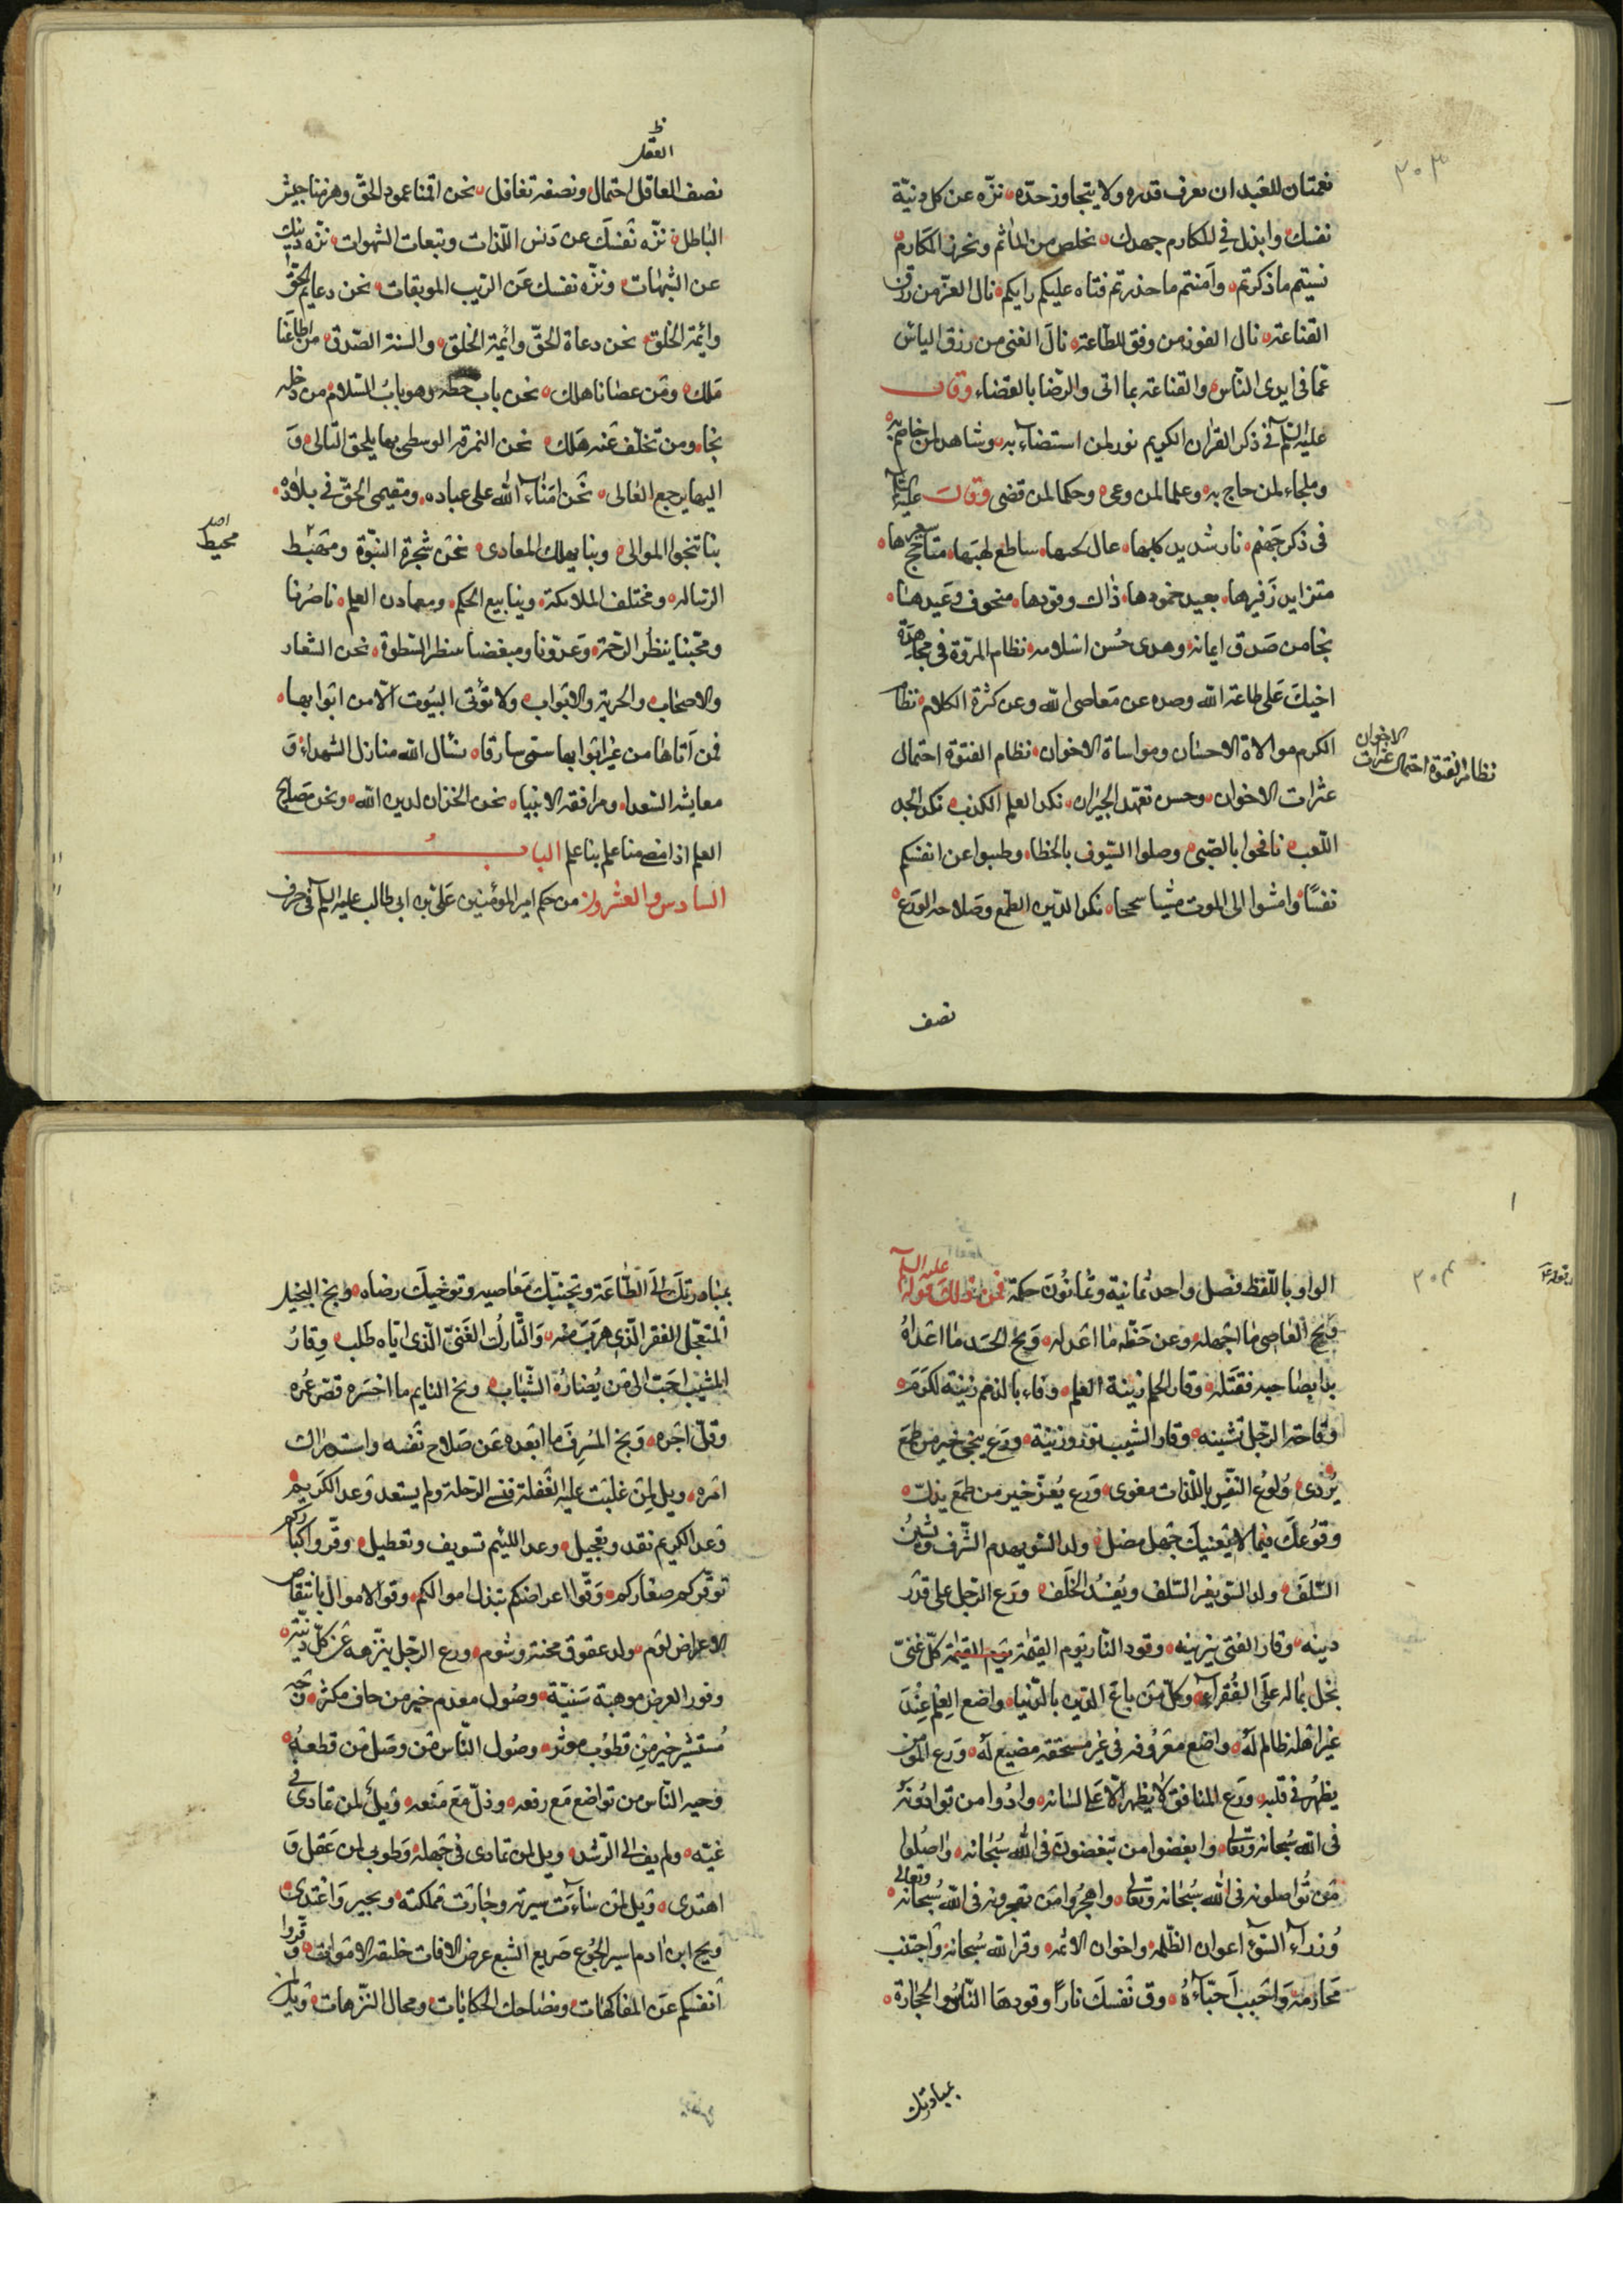 ٣٠٣
نعمتان للعبد ان يعرف قدره ولا يتجاوز حدّه نزّه عن كل دنيّة
نفسك وابذل في المكارم جهدك تخلص من المآثم وتحرز المكارم
نسيتم ما ذكرتم وآمنتم ما حذرتم فتاه عليكم رايكم نال العزّ من رزق
القناعة نال الفوز من وفق للطاعة نال الغنى من رزق الياس
عمّا في ايدى النّاس والقناعة بما اتى والرّضا بالقضاء وقال
عليه السّلم في ذكر القران الكريم نور لمن استضاء به وشاهد لمن خاصم به
وملجاء لمن حاج به وعلما لمن وعى وحكما لمن قضى وقال عليه السلم
في ذكر جهنم نار شديد كلبها عال لجبها ساطع لهبها متأجج سعيرها
متزايد زفيرها بعيد خمودها ذاك وقودها متخوف وعيدها
نجا من صدق ايمانه وهدى حسن اسلامه نظام المروّة في مجاهدة
اخيك على طاعة الله وصده عن معاصى الله وعن كثرة الكلام نظام
الكرم موالاة الاحسان ومواساة الاخوان نظام الفتوة احتمال
عثرات الاخوان وحسن تعهد الجيران نكد العلم الكذب نكد الجد
اللعب نافحوا بالظبى وصلوا السّيوف بالخطا وطيبوا عن انفسكم
نفسًا وامشوا الى الموت مشيا سجحا نكد الدّين الطمع وصلاحه الورع
نظام الفتوة احتمال عثرات الاخوان
نصف
العقل
نصف العاقل احتمال ونصفه تغافل نحن اقمنا عمود الحقّ وهزمنا جيش
الباطل نزّه نفسك عن دنس اللّذات وتبعات الشهوات نزّه دينك
عن الشبهات ونزّه نفسك عن الريب الموبقات نحن دعايم الحقّ
وائمة الخلق نحن دعاة الحقّ وائمة الخلق والسنة الصّدق من اطاعنا
ملك ومن عصانا هلك نحن باب حطه وهو باب السّلام من دخله
نجا ومن تخلّف عنه هلك نحن النمرقة الوسطى بها يلحق التّالى و
اليها يرجع الغالى نحن امناء الله على عباده ومقيمى الحقّ في بلاده
بنا تنجوا الموالى وبنا يهلك المعادى نحن شجرة النبّوة ومهبط
الرّساله ومختلف الملائكة وينابيع الحكم ومعادن العلم ناصرنا
ومحبّنا ينتظر الرّحمة وعدوّنا ومبغضنا ينتظر السّطوة نحن الشعار
والاصحاب والخزنة والابواب ولا تؤتى البيوت الّا من ابوابها
فمن اتاها من غير ابوابها سمّى سارقا نسأل الله منازل الشهداء و
معايشة السّعداء ومرافقة الانبياء نحن الخزان لدين الله ونحن مصابيح
العلم اذا مضى منا علم بدا علم الباب
السادس والعشرون من حكم امير المؤمنين على بن ابى طالب عليه السّلم في حرف
محيط
٣٠٤
الواو باللّفظ فصل واحد ثمانية وثمانون حكمة فمن ذلك قوله عليه السلم
ويح العاصى ما اجهله وعن حظّه ما اعدله ويح الحسد ما اعدله
بدا بصاحبه فقتله وقار الحلم زينة العلم وفاء بالذمم زينة الكرم
وقاحة الرّجل تشينه وقار الشّيب نور وزينة ورع ينجى خير من طمع
يردى ولوع النّفس باللّذات مغوى ورع يعزّ خير من طمع يذلّ
وقوعك فيما لا يعنيك جهل مضل ولد السّو يهدم الشّرف ويشين
السّلف ولد السّو يغر السّلف ويفسد الخلف ورع الرّجل على قدر
دينه وقار الفتى يزينه وقود النّار يوم القيمة يوم القيمة كلّ غنىّ
بخل بماله على الفقراء وكلّ من باع الدّين بالدّنيا واضع العلم عند
غير اهله ظالم له واضع معروفه في غير مستحقه مضيع له ورع المؤمن
يظهر في قلبه ورع المنافق لا يظهر الّا على لسانه وادّوا من توادّونه
في الله سبحانه وتعالى وابغضوا من تبغضونه في الله سبحانه واصلوا
من تواصلونه في الله سبحانه وتعالى واهجروا من تهجرونه في الله سبحانه وتعالى
وزراء السّوء اعوان الظّلمة واخوان الاثمة وقر الله سبحانه واجتنب
محارمه واحبب احبّاءه وق نفسك نارًا وقودها النّاس والحجارة
بمبادرتك
بمبادرتك الى الطّاعة وتجنّبك معاصيه وتوخيك رضاه ويح البخيل
المتعجّل الفقر الّذى هرب منه والتّارك الغنى الّذى ايّاه طلب وقار
الشّيب احبّ الىّ من نضارة الشّباب ويح النايم ما اخسره قصر عمره
وقلّ اجره ويح المسرف ما ابعده عن صلاح نفسه واستدراك
امره ويل لمن غلبت عليه الغفلة فنسى الرّحلة ولم يستعد وعد الكريم
وعد الكريم نقد وتعجيل وعد اللئيم تسويف وتعطيل وقّروا كباركم
توقّركم صغاركم وقوا اعراضكم ببذل اموالكم وقو الاموال بانتقاص
الاعراض لوم ولد عقوق محنة وشوم ورع الرّجل ينزّهه عن كلّ دنيّة
وفور العرض موهبة سنيّة وصول معدم خير من جاف مكثر وجه
مستبشر خير من قطوب موثر وصول النّاس من وصل من قطعه
وجيه النّاس من تواضع مع رفعه وذلّ مع منعه ويل لمن تمادى في
غيّه ولم يف الى الرّشد ويل لمن تمادى في جهله وطوبى لمن عقل و
اهتدى ويل لمن ساءت سيرته وجارت مملكته وتجبر واعتدى
ويح ابن ادم اسير الجوع صريع الشبع عرض الافات خليفة الاموات وقّروا
انفسكم عن المفاكهات ومضاحك الحكايات ومحال التّرهات